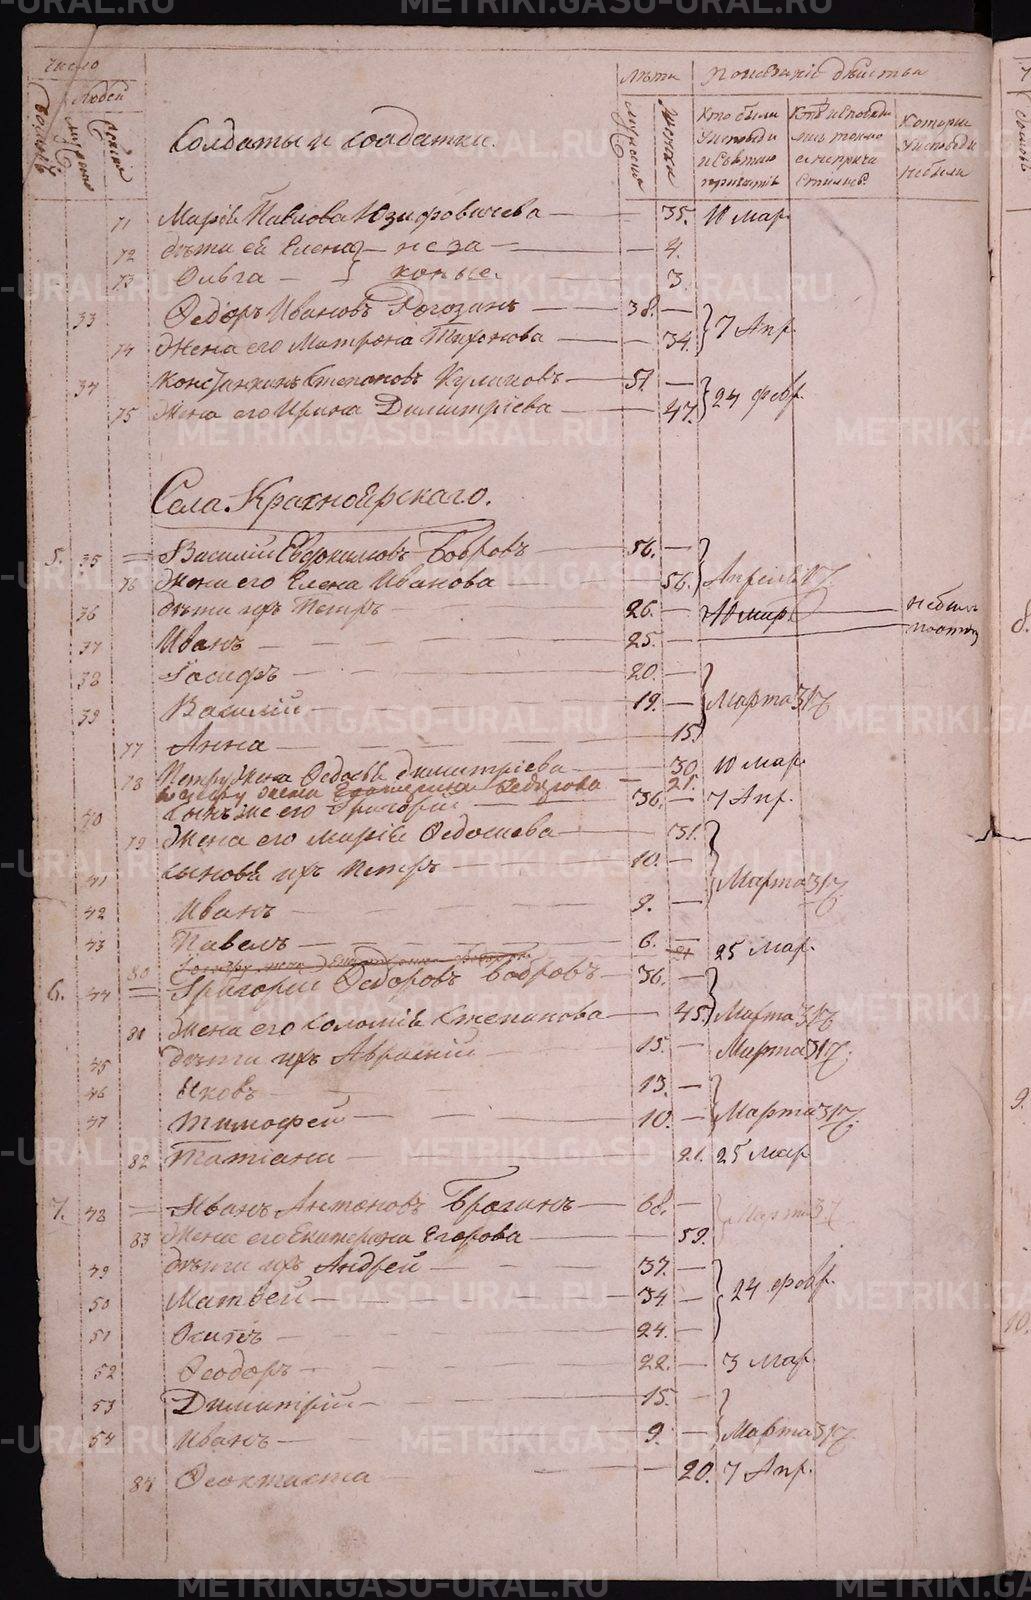 Число
Людей
Лѣта
Показанїе дѣйства
Кто были
у исповѣди
и Святаго
причастїя
Кто исповѣда
лись токмо
а не прича
стились
Которые
у исповѣди
небыли
Солдаты и солдатки.
71 Марїя Павлова Юзифовичева — 35. 10 Мар.
72 дѣти ея Елена — неза — 4.
73 Ольга — конные. 3.
33 Ѳедоръ Ивановъ Рогозинъ — 38. —
74 Жена его Матрона Тихонова — 34. 7 Апр.
34 Константинъ Степановъ Куликовъ — 51. —
75 Жена его Ирина Димитрїева — 47. 24 февр.
Села Красноярскаго.
5. 35 = Василїй Евдокимовъ Бобровъ — 56. —
76 Жена его Елена Иванова — 56. Апреля 17.
36 дѣти ихъ Петръ — 26. — 10 мар. небыли
37 Иванъ — 25.
38 Їосифъ — 20. —
39 Василїй — 19. — Марта 31.
77 Анна — 15.
78 Петру Жена Ѳедосья Димитрїева — 30. 10 мар.
жена Екатерина Ѳедорова — 21.
40 сынъ же его Григорїй — 36. — 7 Апр.
79 Жена его Марїя Ѳедосѣева — 31.
41 сыновья ихъ Петръ — 10. — Марта 31.
42 Иванъ — 9. —
43 Павелъ — 6. — 25 мар.
80 21
6. 44 = Григорїй Ѳедоровъ Бобровъ — 36. —
81 Жена его Соломїя Степанова — 45. Марта 31.
45 дѣти ихъ Аврамїй — 15. — Марта 31.
46 Яковъ — 13. —
47 Тимофей — 10. — Марта 31.
82 Татїана — 21. 25 мар.
7. 48 = Иванъ Антоновъ Брагинъ — 68. — Марта 31.
83 Жена его Екатерина Егорова — 59.
49 дѣти ихъ Андрей — 37. —
50 Матвей — 34 — 24 февр.
51 Осипъ — 24. —
52 Ѳеодоръ — 22. — 3 мар.
53 Димитрїй — 15. —
54 Иванъ — 9. — Марта 31.
84 Ѳеоктиста — 20. 7 Апр.
8.
9.
10.
METRIKI.GASO-URAL.RU